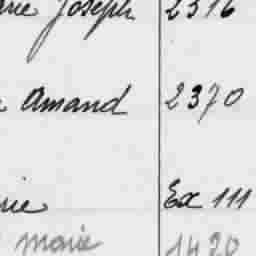 Joseph 2316
Amand 2370
Ex 111
marie 1420